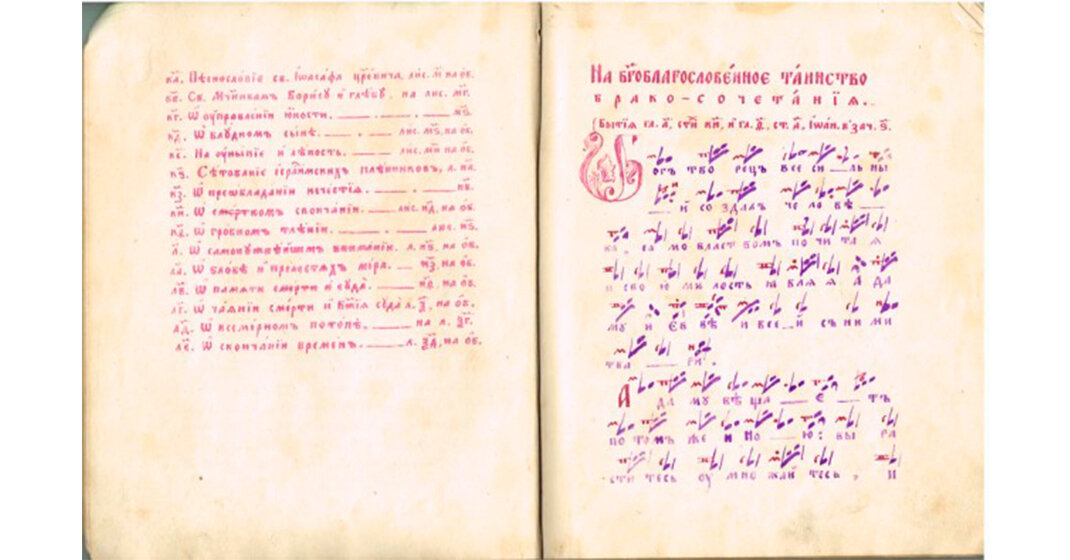 к҃а. Пѣснословїе св. Іѡасафа црⷭ҇вича, лис. м҃ на ѻб.
к҃в. Св. Мч҃никам Борису и глѣбу. на лис. м҃г.
к҃г. Ѡ оуправленїи юности.
к҃д. Ѡ блудном сынѣ. лис. м҃ѕ, на ѻб.
к҃є. На оуныніе и лѣность. лис. м҃и на ѻб.
к҃ѕ. Сѣтованіе іерⷭ҇лимских плѣнников, л. н҃а.
к҃з. Ѡ преѡбладаніи нечестія. н҃в.
к҃и. Ѡ смертном скончаніи. лис. н҃д, на ѻб.
к҃ѳ. Ѡ гробном тлѣніи. лис. н҃ѕ.
л҃. Ѡ внимани. л. н҃ѕ, на ѻб.
л҃а. Ѡ злобѣ и прелестях мира. н҃з, на ѻб.
л҃в. Ѡ памяти смерти и суда. н҃ѳ, на ѻб.
л҃г. Ѡ чаяніи смерти и Бж҃ія суда л. ѯ҃, на ѻб.
л҃д. Ѡ всемирном потопѣ. на л. ѯ҃г.
л҃є. Ѡ скончаніи времен. л. ѯ҃д, на ѻб.
На бг҃облагословенное таинство
брако-сочетанїя.
(Бытія гл. а҃, стⷯи к҃и, и гл. д҃, ст. а҃, Іѡан. в҃ зач. ѕ҃.
Ѡтвору
огъ тво рецъ все си — ль ны
— й со зда лъ че ло вѣ —
ка, са мо власт вомъ по чи та я
и сво ю ми лость я вля я а да
му и Єв вѣ и все — и съ ни ми
тва ри.
А да му вѣ ща — є — тъ
по томъ же и Но — ю: вы ра
сти тесь оу мно жай тесь, и